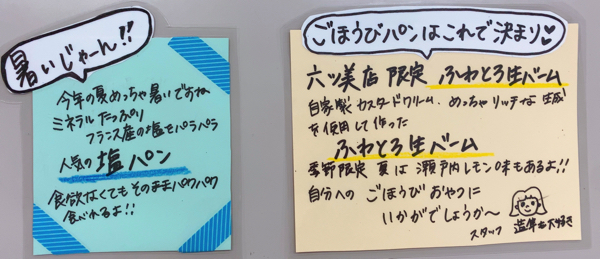 暑いじゃーん!!
今年の夏めっちゃ暑いですね
ミネラルたっぷり
フランス産の塩をパラパラ
人気の塩パン
食欲なくてもそのままパクパク
食べれるよ!!
ごほうびパンはこれで決まり♡
六ッ美店 限定 ふわとろ生バーム
自家製カスタードクリーム、めっちゃリッチな生成
を使用して作った
ふわとろ生バーム
季節限定 夏は瀬戸内レモン味もあるよ!!
自分への ごほうびおやつに
いかがでしょうか〜
スタッフ
大好き